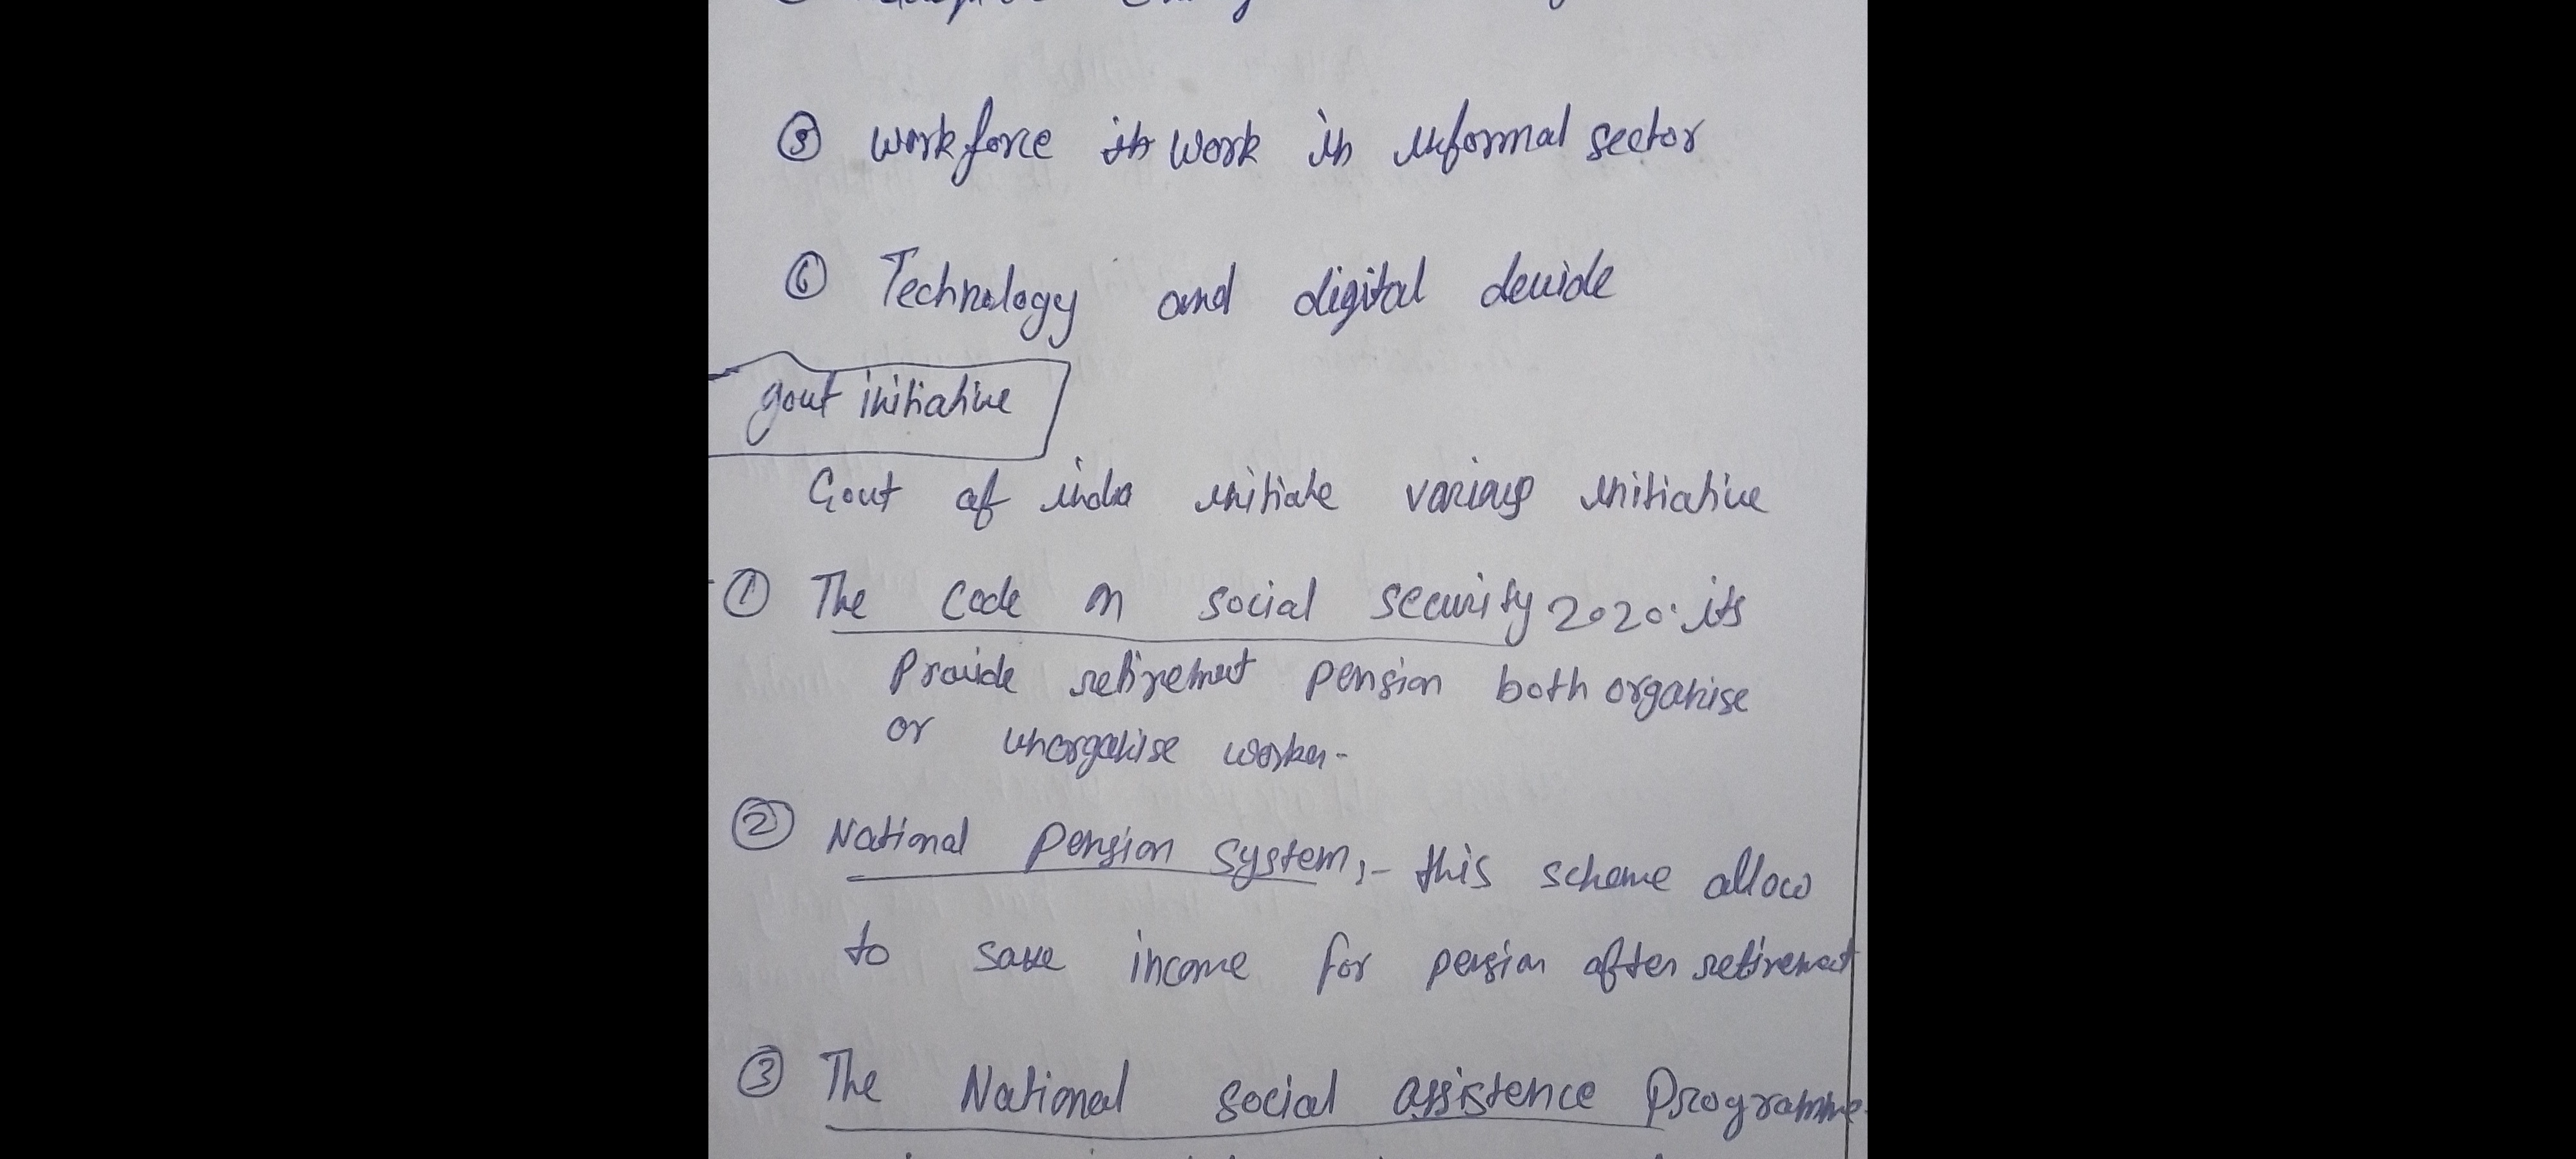 ⑤ workforce ith work in informal sector
⑥ Technology and digital devide
govt initiative
Govt of india initiate various initiative
① The Code on social security 2020. its
Provide retirement pension both organise
or unorganise worker-
② National pension system:- this scheme allow
to save income for pension after retirement
③ The National social assistence Programme